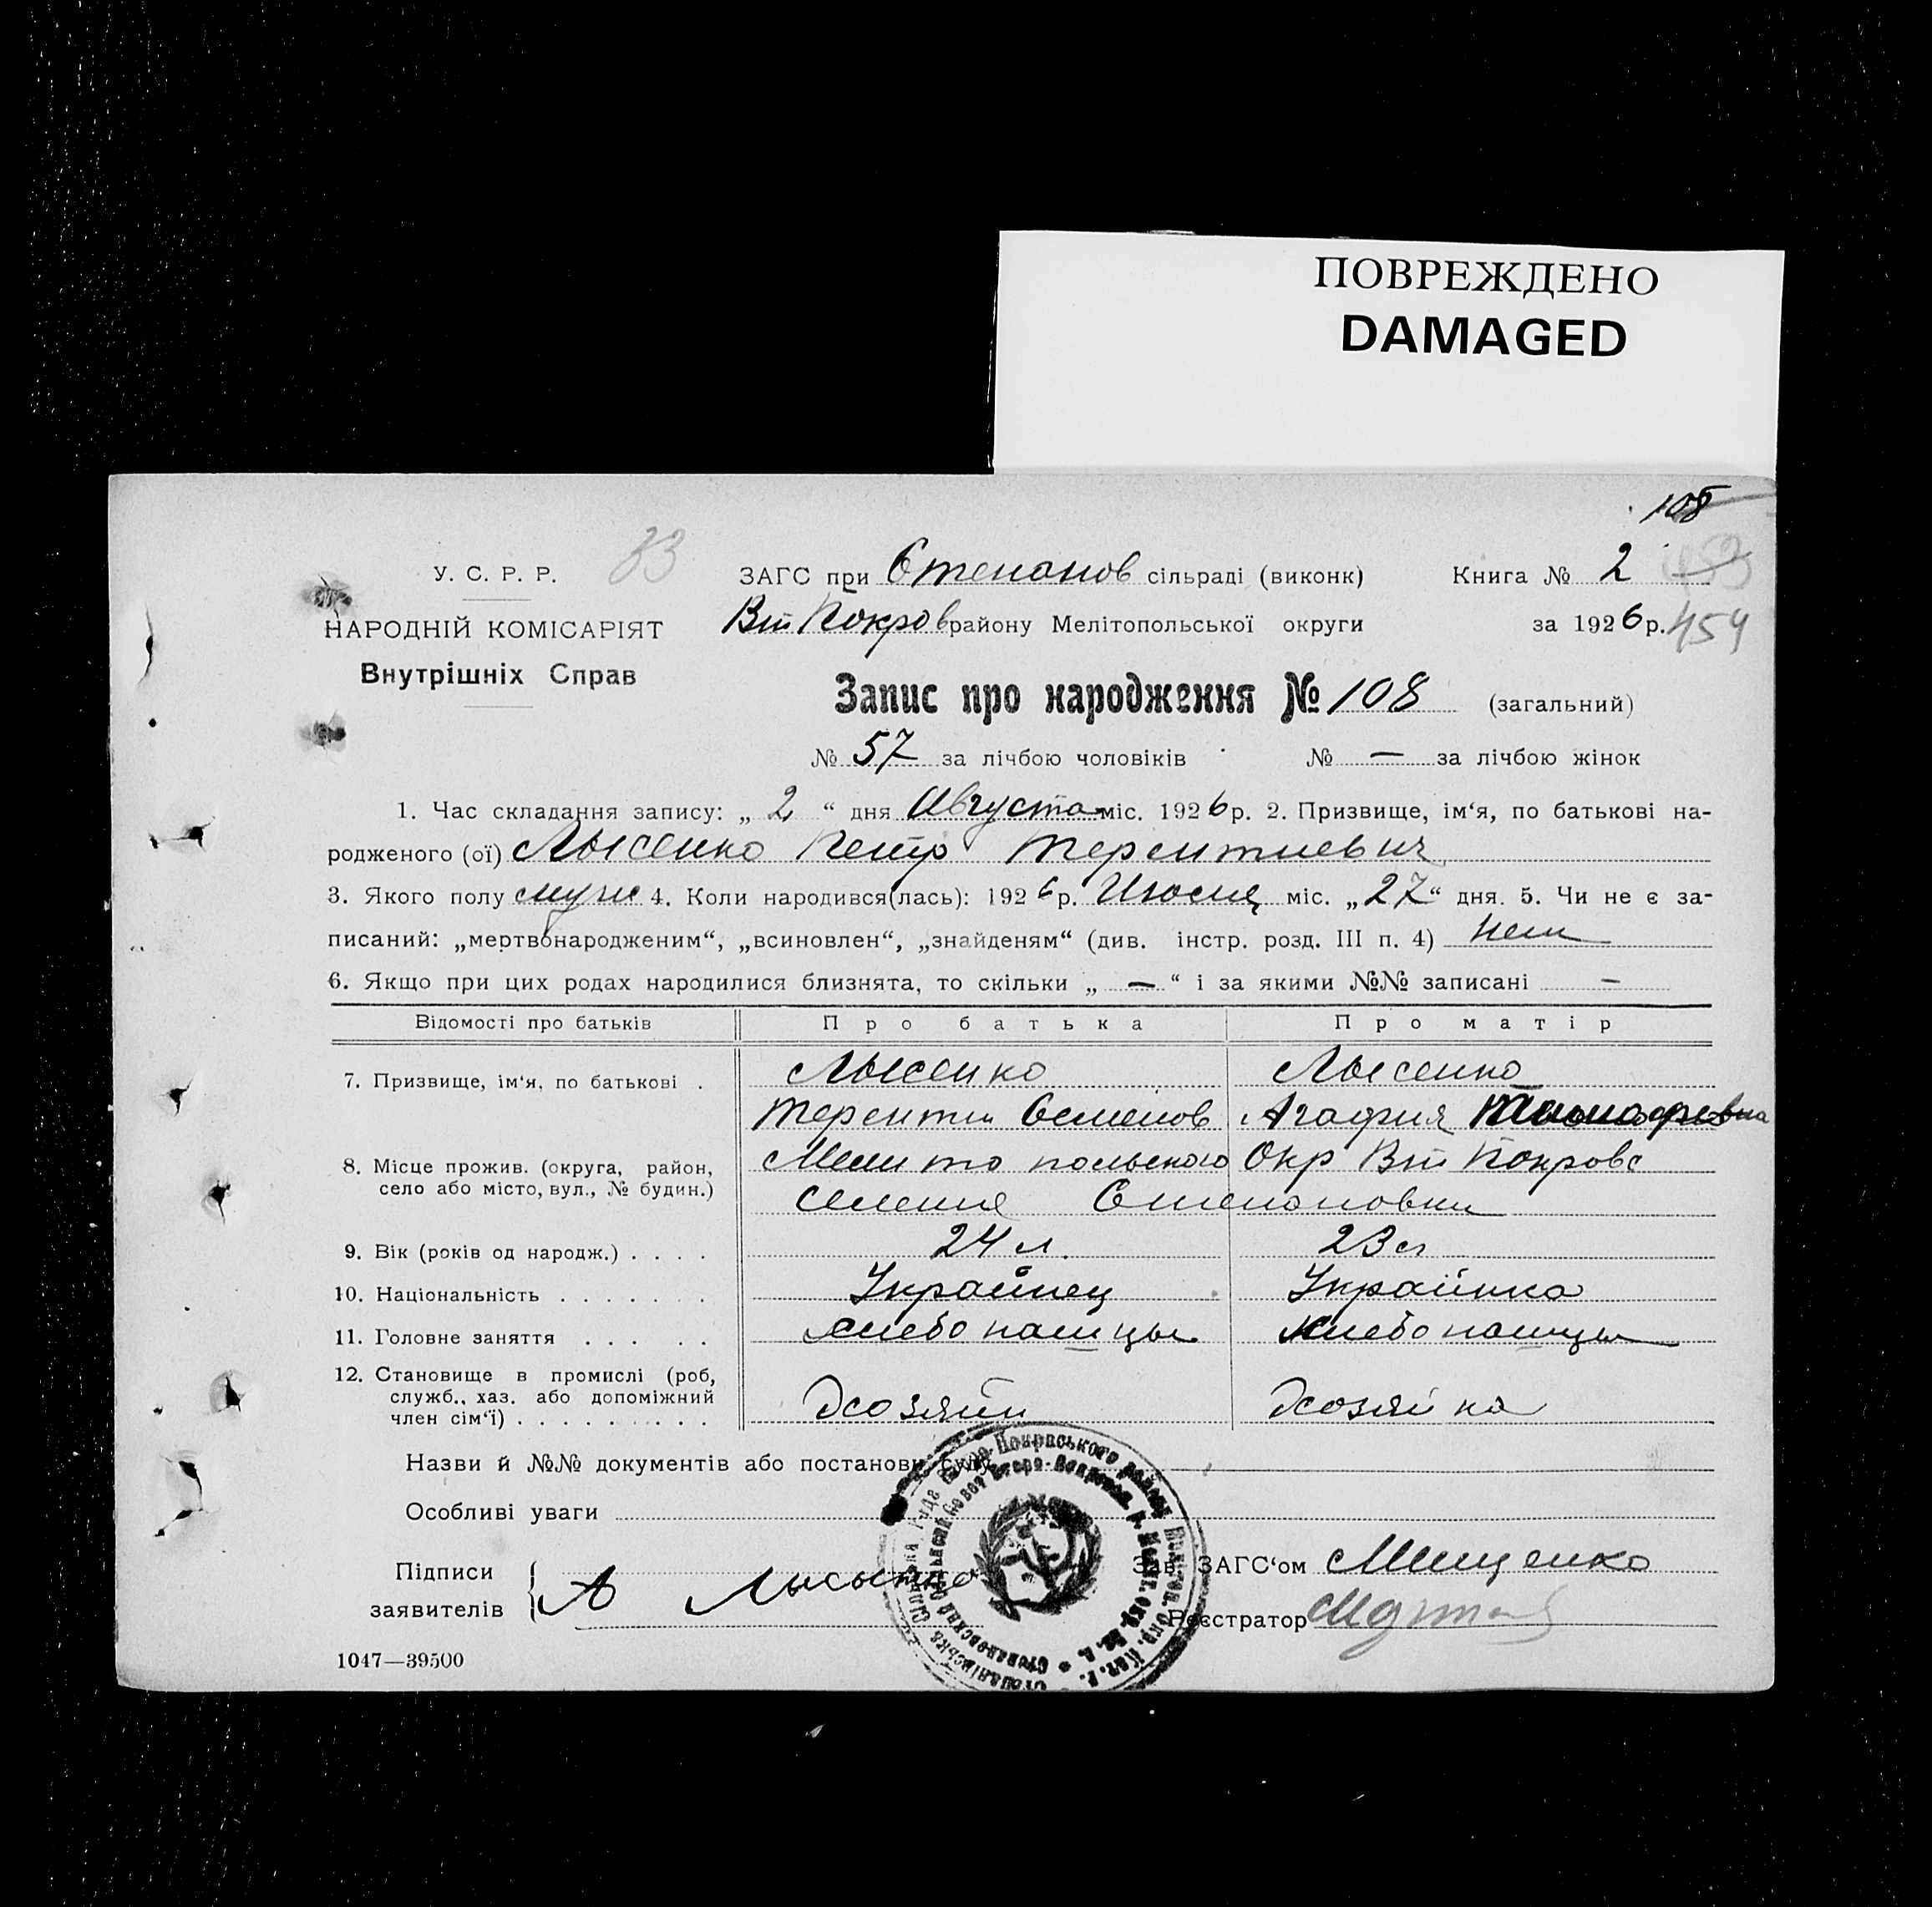 ПОВРЕЖДЕНО
DAMAGED
108
У. С. Р. Р. 33 ЗАГС при Степанов сільраді (виконк) Книга № 2
НАРОДНІЙ КОМІСАРІЯТ Вт Покров району Мелітопольської округи за 1926 р. 454
Внутрішніх Справ
Запис про народження № 108 (загальний)
№ 57 за лічбою чоловіків № — за лічбою жінок
1. Час складання запису: „ 2 “ дня Августа міс. 1926 р. 2. Призвище, ім‘я, по батькові на-
родженого (ої) Лысенко Петр Терентиевич
3. Якого полу муж 4. Коли народився(лась): 1926 р. Июля міс. „27“ дня. 5. Чи не є за-
писаний: „мертвонародженим“, „всиновлен“, „знайденям“ (див. інстр. розд. III п. 4) нет
6. Якщо при цих родах народилися близнята, то скільки „ — “ і за якими №№ записані —
Відомості про батьків Про батька Про матір
7. Призвище, ім‘я, по батькові . Лысенко Лысенко
Терентий Семенов Агафия
8. Місце прожив. (округа, район, Мелитопольского Окр Вт Покровс
село або місто, вул., № будин.) селение Степановки
9. Вік (років од народж.) . . . . 24 л. 23 л
10. Національність . . . . . . . Украинец Украинка
11. Головне заняття . . . . . хлебопашцы хлебопашцы
12. Становище в промислі (роб,
служб., хаз. або допоміжний
член сім‘ї) . . . . . . . . . Хозяин Хозяйка
Назви й №№ документів або постанови суду
Особливі уваги
Підписи Зав. ЗАГС‘ом Мищенко
заявителів А Лысенко Реєстратор
1047—39500